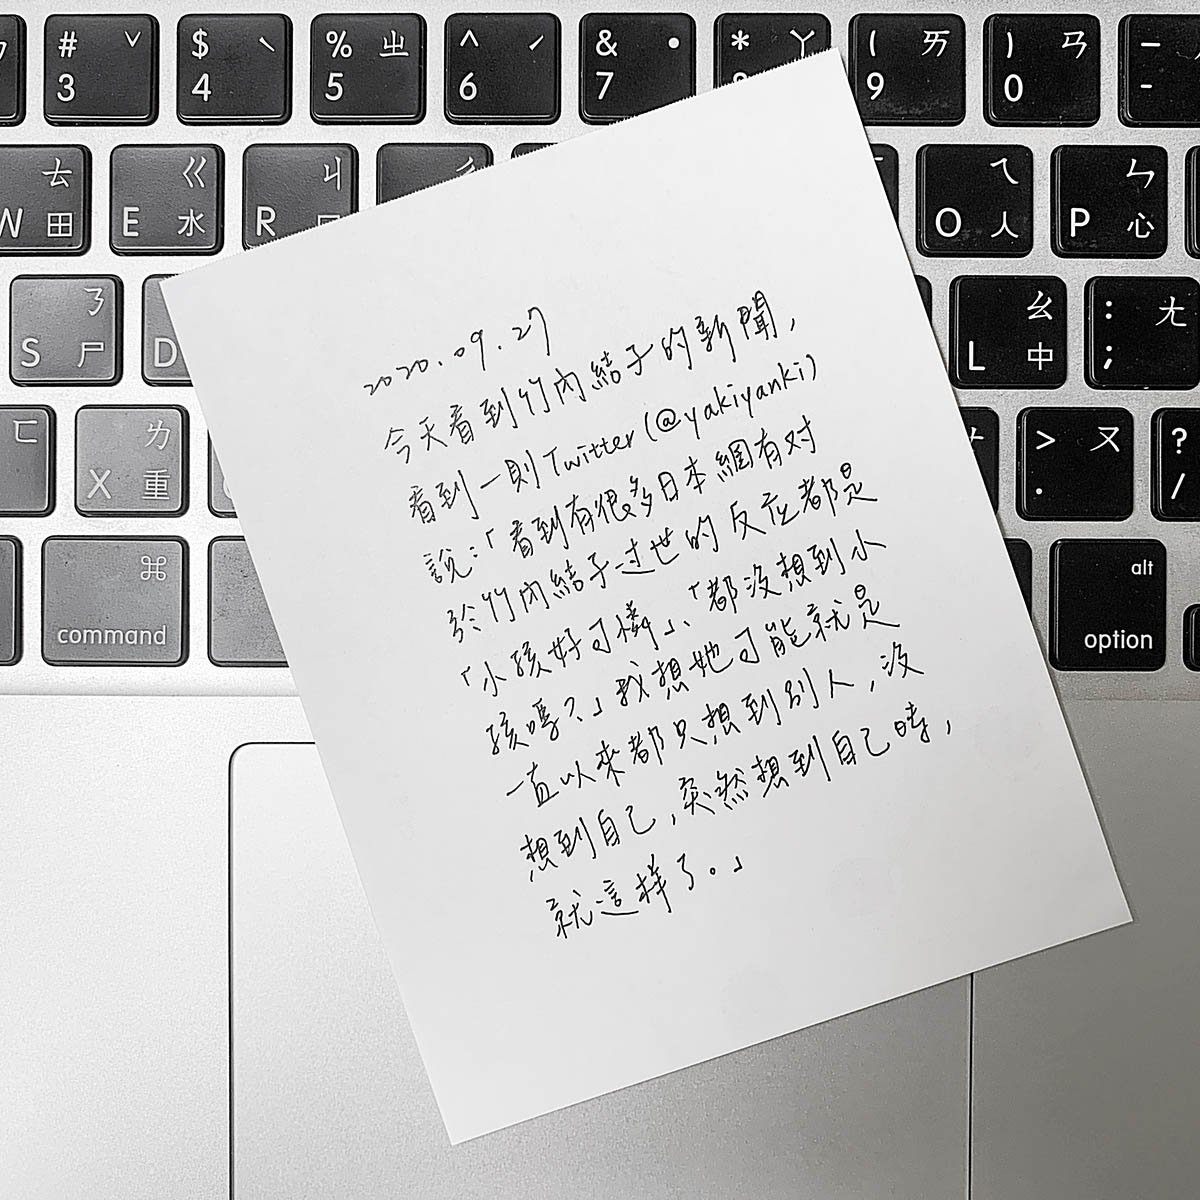 # ˇ 3
$ ˋ 4
% ㄓ 5
^ ˊ 6
& ˙ 7
* ㄚ
( ㄞ 9
) ㄢ 0
ㄊ W 田
ㄍ E 水
ㄐ R
ㄟ O 人
ㄣ P 心
ㄋ S 尸
D
ㄠ L 中
: ㄤ ;
ㄈ
ㄌ X 重
> ㄡ .
? /
⌘ command
alt option
2020.09.27
今天看到竹內結子的新聞，
看到一則Twitter(@yakiyanki)
說：「看到有很多日本網有对
於竹內結子过世的反应都是
「小孩好可憐」、「都沒想到小
孩嗎？」我想她可能就是
一直以來都只想到別人，沒
想到自己，突然想到自己時，
就這樣了。」